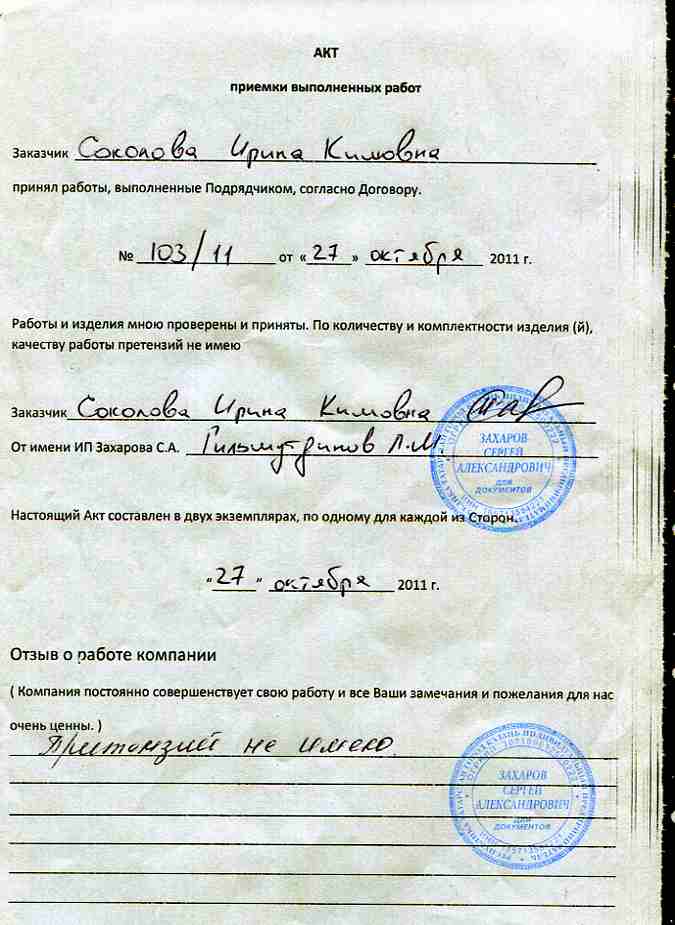 АКТ
приемки выполненных работ
Заказчик Соколова Ирина Кимовна
принял работы, выполненные Подрядчиком, согласно Договору.
№ 103/11 от «27» октября 2011 г.
Работы и изделия мною проверены и приняты. По количеству и комплектности изделия (й),
качеству работы претензий не имею
Заказчик Соколова Ирина Кимовна
От имени ИП Захарова С.А. Гильмутдинов Л.М
ЗАХАРОВ
СЕРГЕЙ
АЛЕКСАНДРОВИЧ
ДЛЯ
ДОКУМЕНТОВ
Настоящий Акт составлен в двух экземплярах, по одному для каждой из Сторон.
"27" октября 2011 г.
Отзыв о работе компании
( Компания постоянно совершенствует свою работу и все Ваши замечания и пожелания для нас
очень ценны. )
Притензий не имею.
ЗАХАРОВ
СЕРГЕЙ
АЛЕКСАНДРОВИЧ
ДЛЯ
ДОКУМЕНТОВ